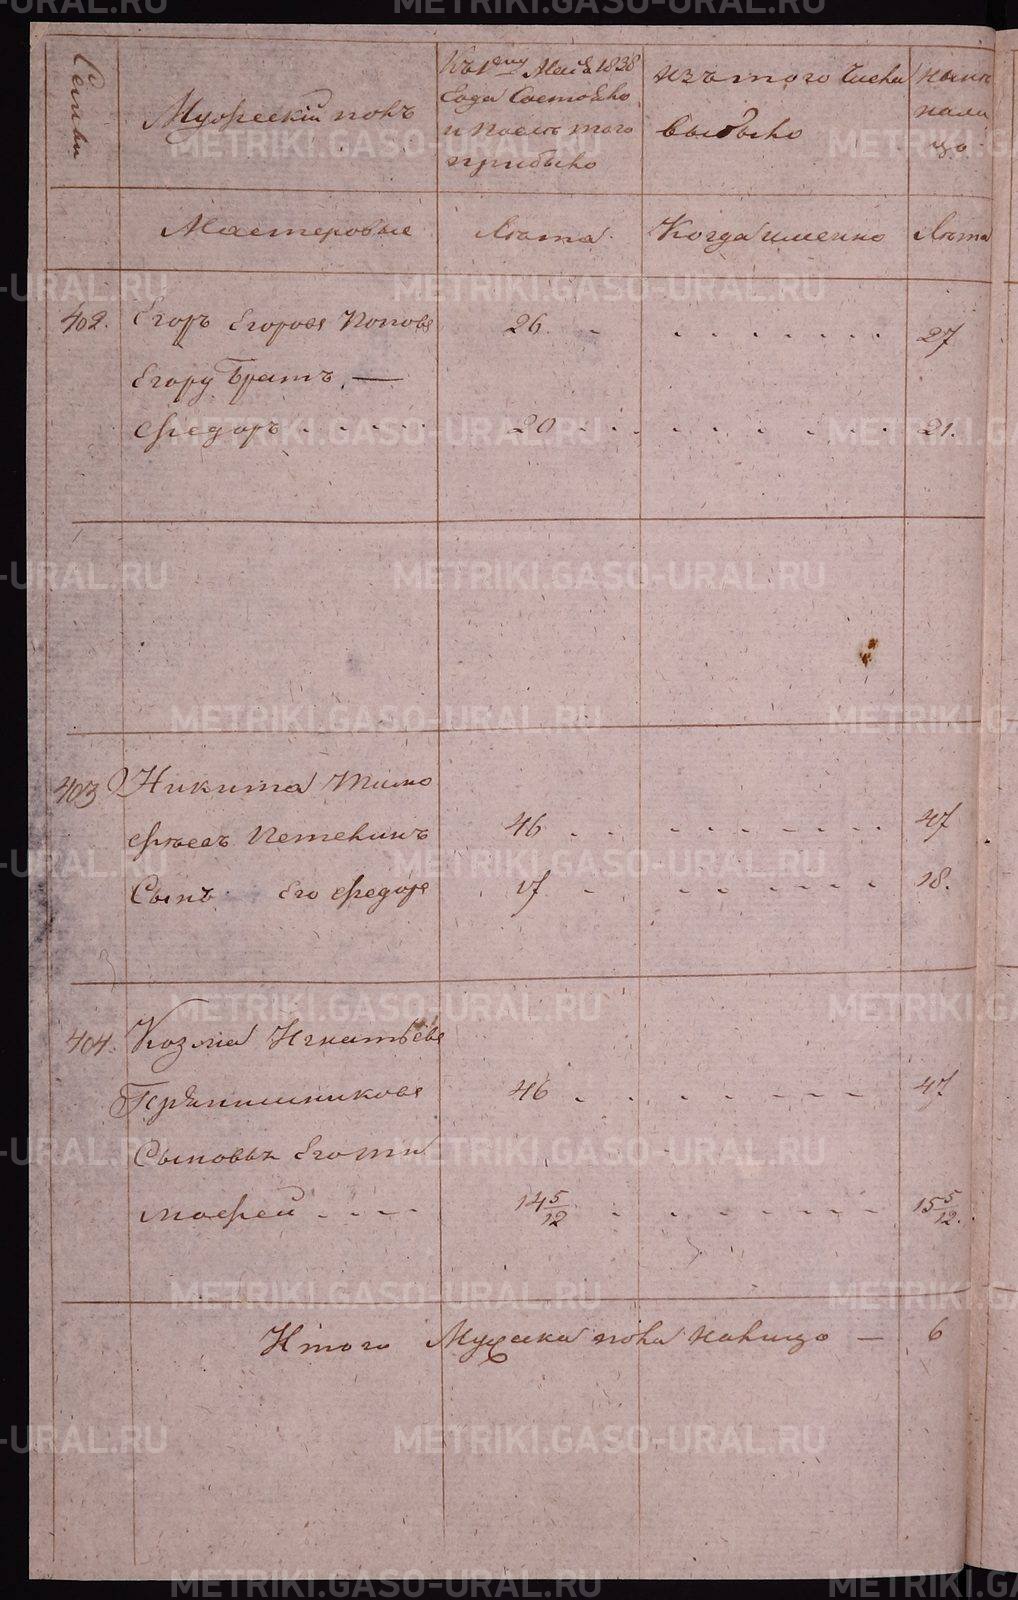 Семьи
Мужескiй полъ
Къ 1му Маiя 1838
года Состояло
и после того
прибыло
изъ того Числа
выбыло
ныне
нали
цо
Мастеровые
Лета
Когда именно
Лета
402. Егоръ Егоровъ Поповъ 26 27
Егору Братъ —
Федоръ 20 21.
403 Никита Тимо
феевъ Петелинъ 46 47
Сынъ Его Федоръ 17 18.
404. Козма Игнатьевъ
Прянишниковъ 46 47
Сыновья Его Ти
мофей 14 5/12 15 5/12.
Итого Мужска пола налицо — 6
METRIKI.GASO-URAL.RU